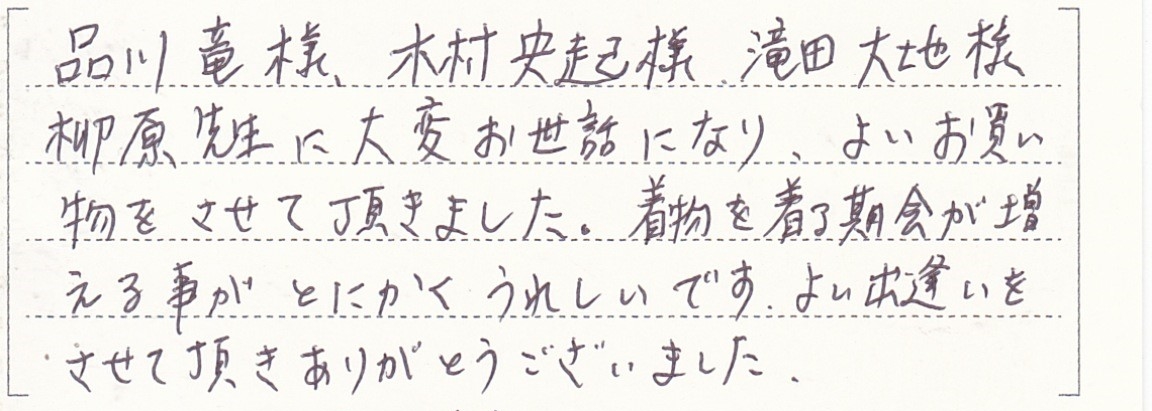 品川竜様、木村央起様、滝田大地様
柳原先生に大変お世話になり、よいお買い
物をさせて頂きました。着物を着る期会が増
える事がとにかくうれしいです、よい出逢いを
させて頂きありがとうございました、